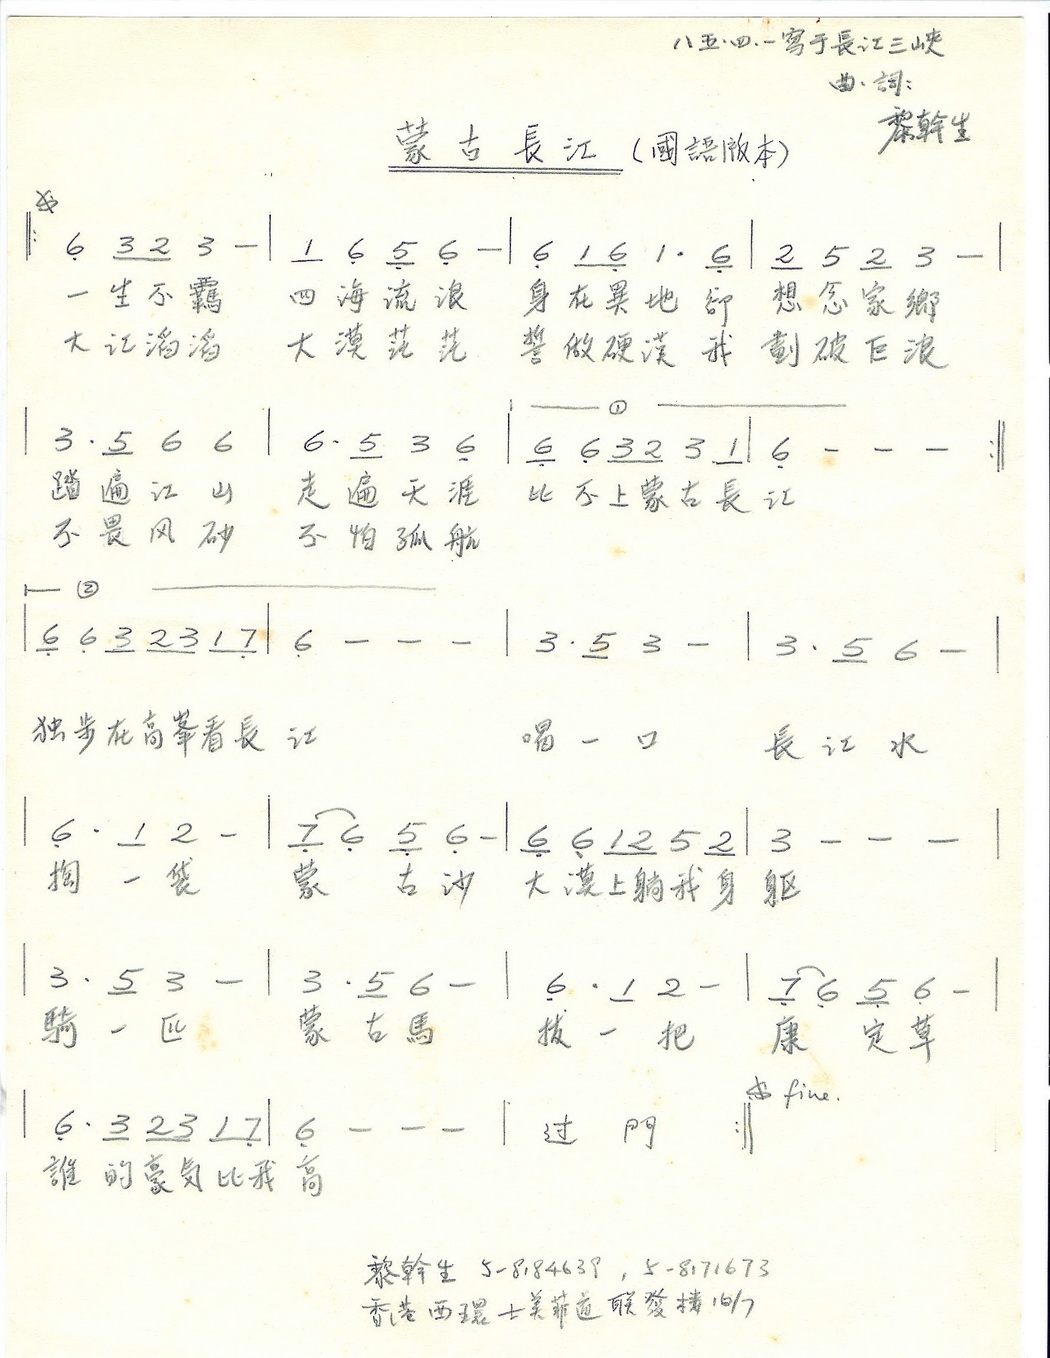 八五.四.一寫于長江三峽
曲.詞:
黎幹生
蒙古長江(國語版本)
6 3 2 3 — | 1 6 5 6 — | 6 1 6 1 · 6 | 2 5 2 3 — |
一生不羈 四海流浪 身在異地卻 想念家鄉
大江滔滔 大漠茫茫 誓做硬漢我 劃破巨浪
①
| 3 · 5 6 6 | 6 · 5 3 6 | 6 6 3 2 3 1 | 6 — — — :||
踏遍江山 走遍天涯 比不上蒙古長江
不畏风砂 不怕孤航
②
| 6 6 3 2 3 1 7 | 6 — — — | 3 · 5 3 — | 3 · 5 6 — |
独步在高峯看長江 喝一口 長江水
| 6 · 1 2 — | 7 6 5 6 — | 6 6 1 2 5 2 | 3 — — — |
掏一袋 蒙古沙 大漠上躺我身軀
| 3 · 5 3 — | 3 · 5 6 — | 6 · 1 2 — | 7 6 5 6 — |
騎一匹 蒙古馬 拔一把 康定草
fine.
| 6 · 3 2 3 1 7 | 6 — — — | 过門 :||
誰的豪気比我高
黎幹生 5-8184639, 5-8171673
香港西環士美菲道聯發樓16/7